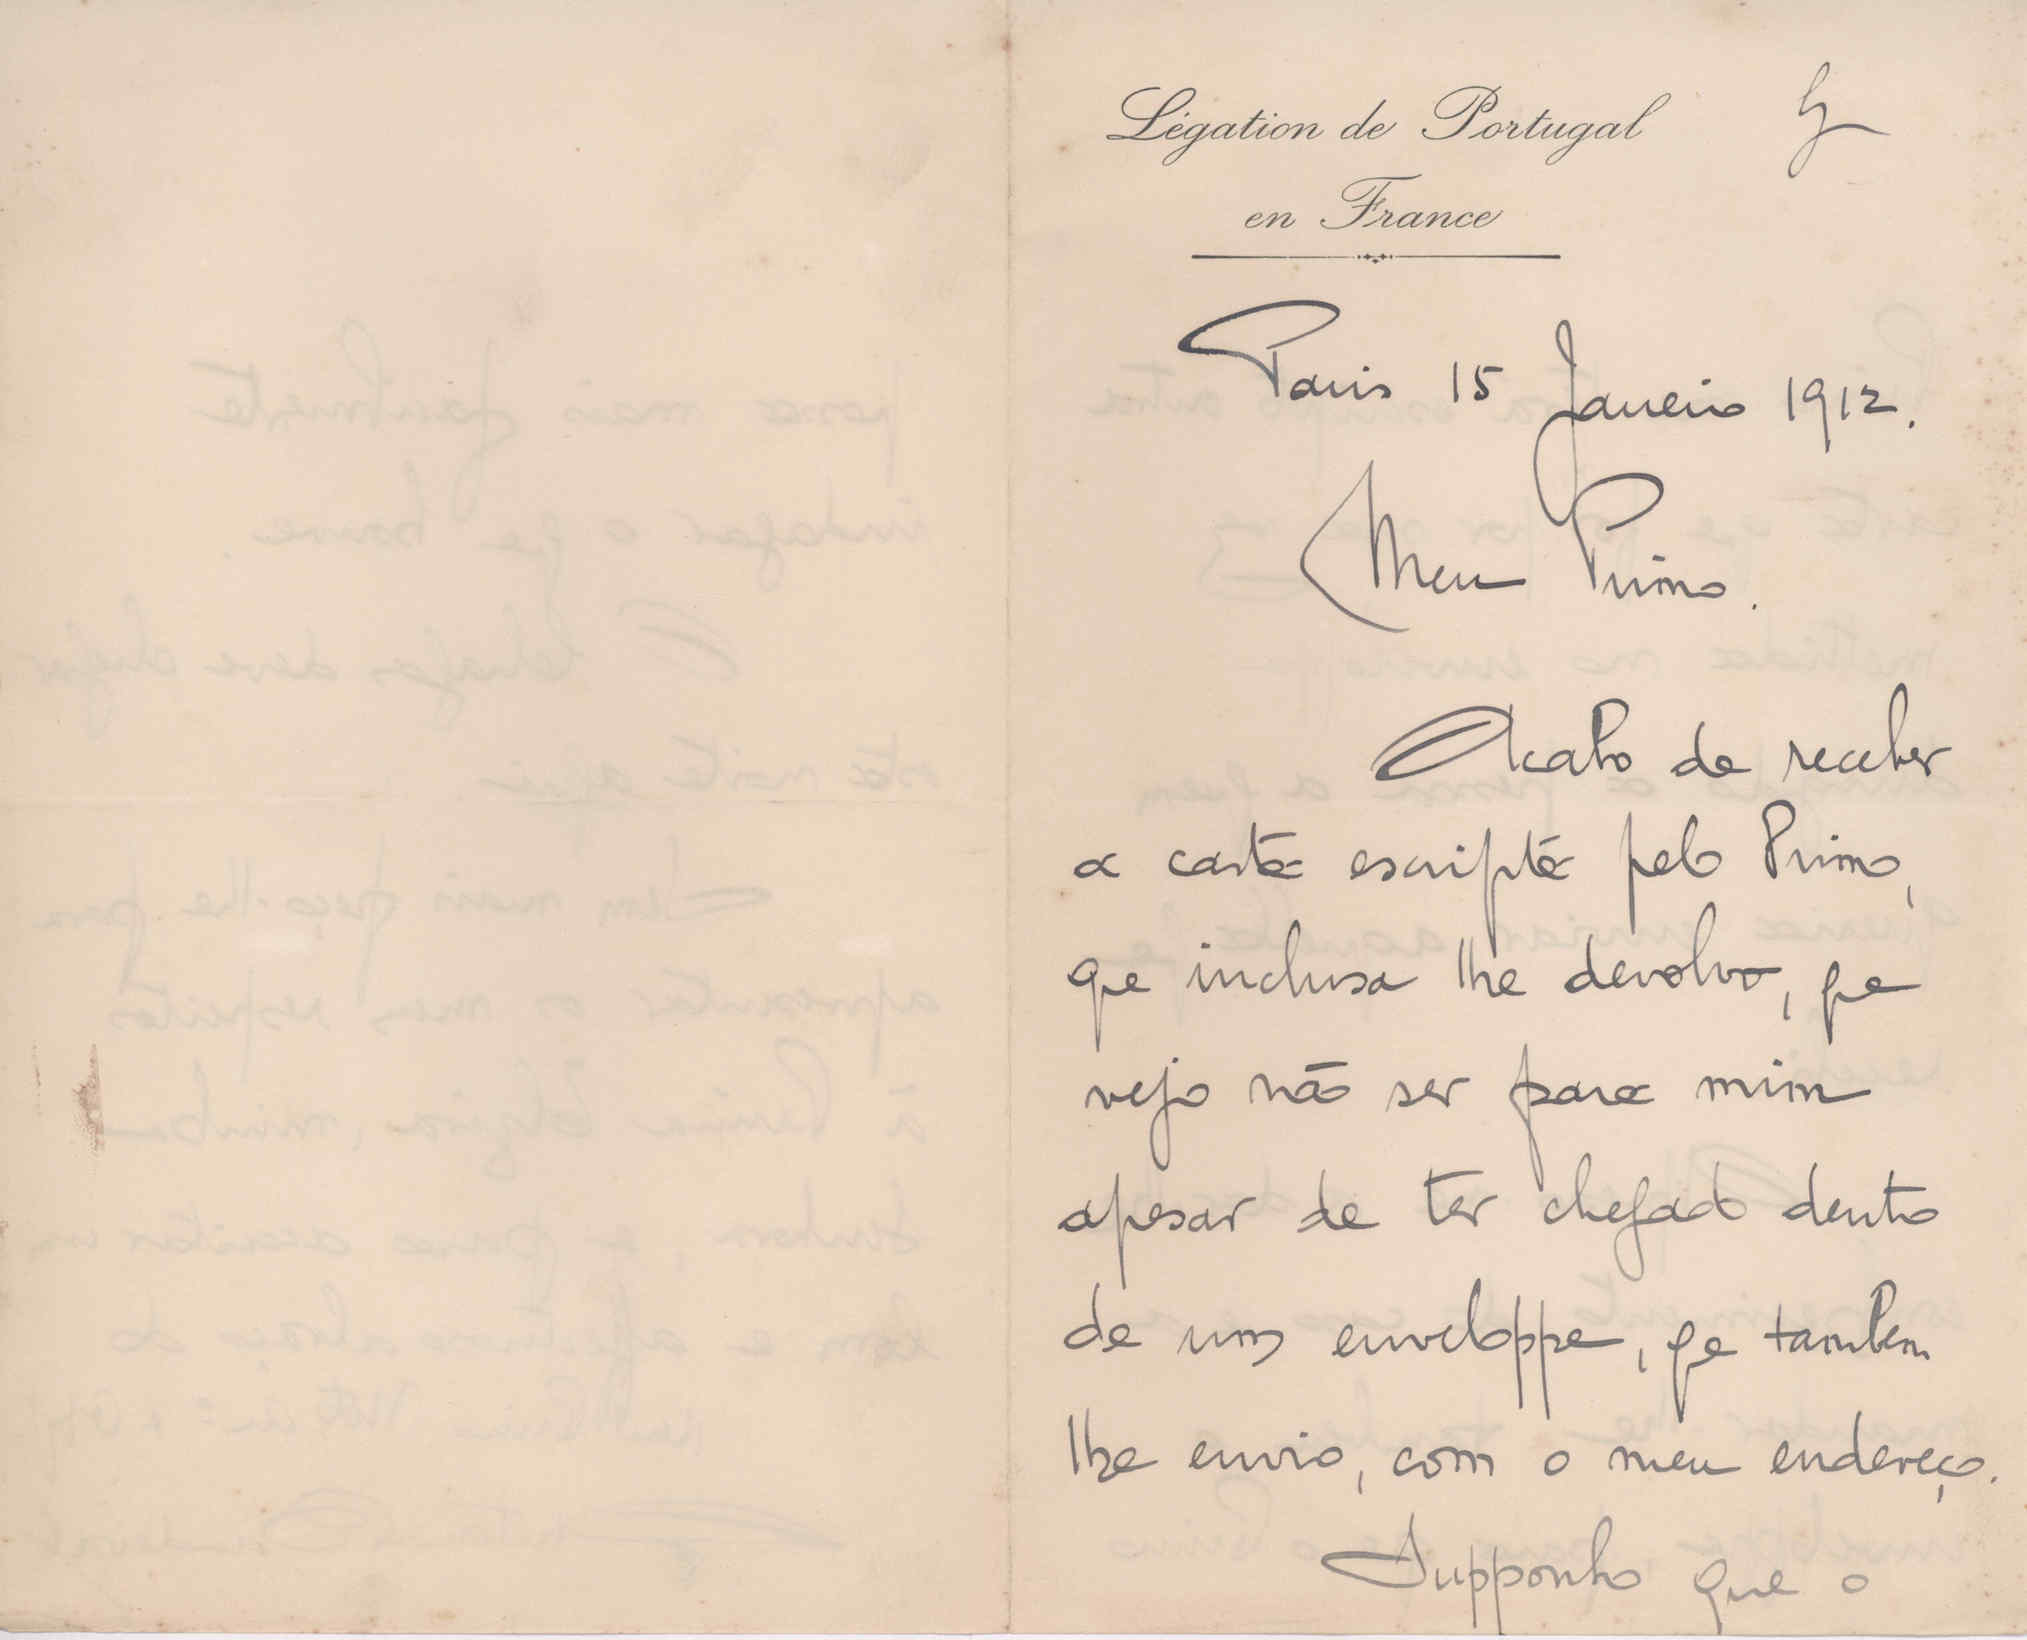 Légation de Portugal
en France
Paris 15 Janeiro 1912.
Meu Primo.
Acabo de receber
a carta escripta pelo Primo,
que inclusa lhe devolvo, que
vejo não ser para mim
apesar de ter chegado dentro
de um enveloppe, que tambem
lhe envio, com o meu endereço.
Supponho que o